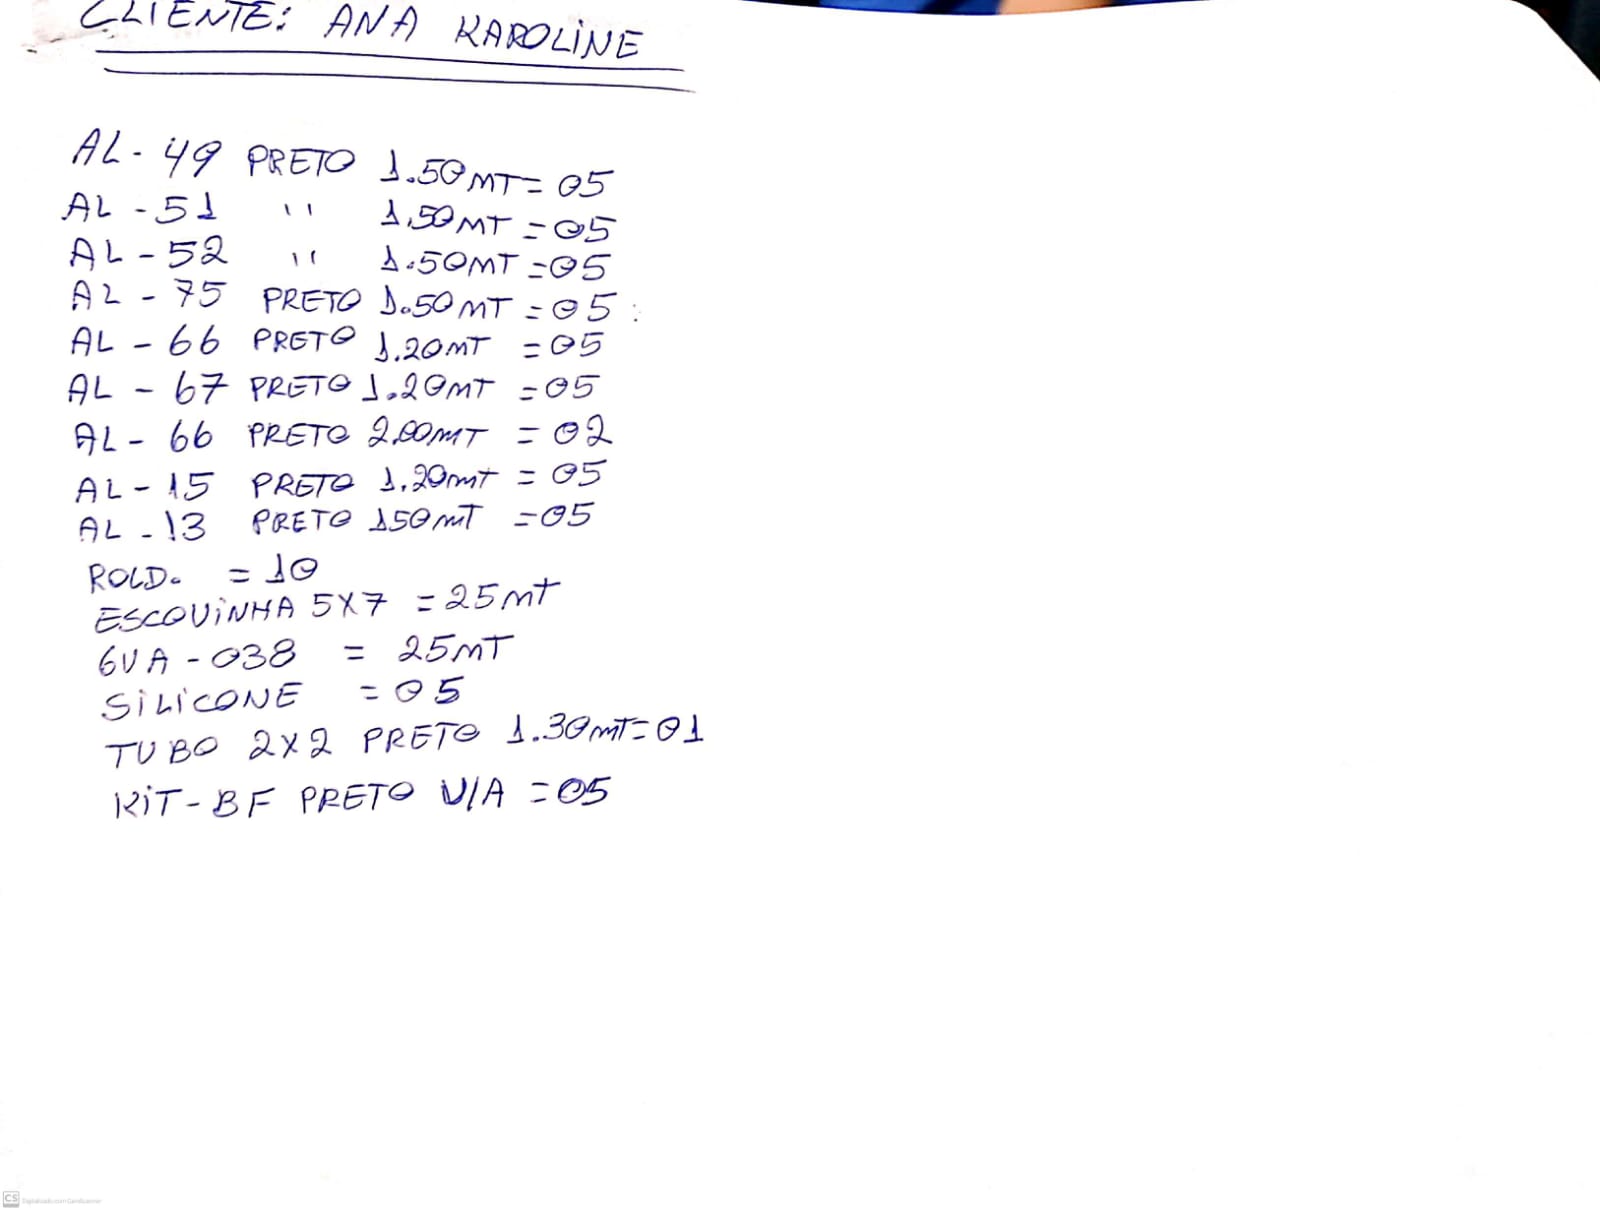 CLIENTE: ANA KAROLINE
AL - 49 PRETO 1.50MT = 05
AL - 51 " 1,50MT = 05
AL - 52 " 1.50MT = 05
AL - 75 PRETO 1.50MT = 05
AL - 66 PRETO 1.20MT = 05
AL - 67 PRETO 1.20MT = 05
AL - 66 PRETO 2,00MT = 02
AL - 15 PRETO 1,20mt = 05
AL - 13 PRETO 150mT = 05
ROLD. = 10
ESCOVINHA 5X7 = 25mt
GUA - 038 = 25MT
SILICONE = 05
TUBO 2X2 PRETO 1.30MT = 01
KIT - BF PRETO V/A = 05
CS Digitalizado com CamScanner